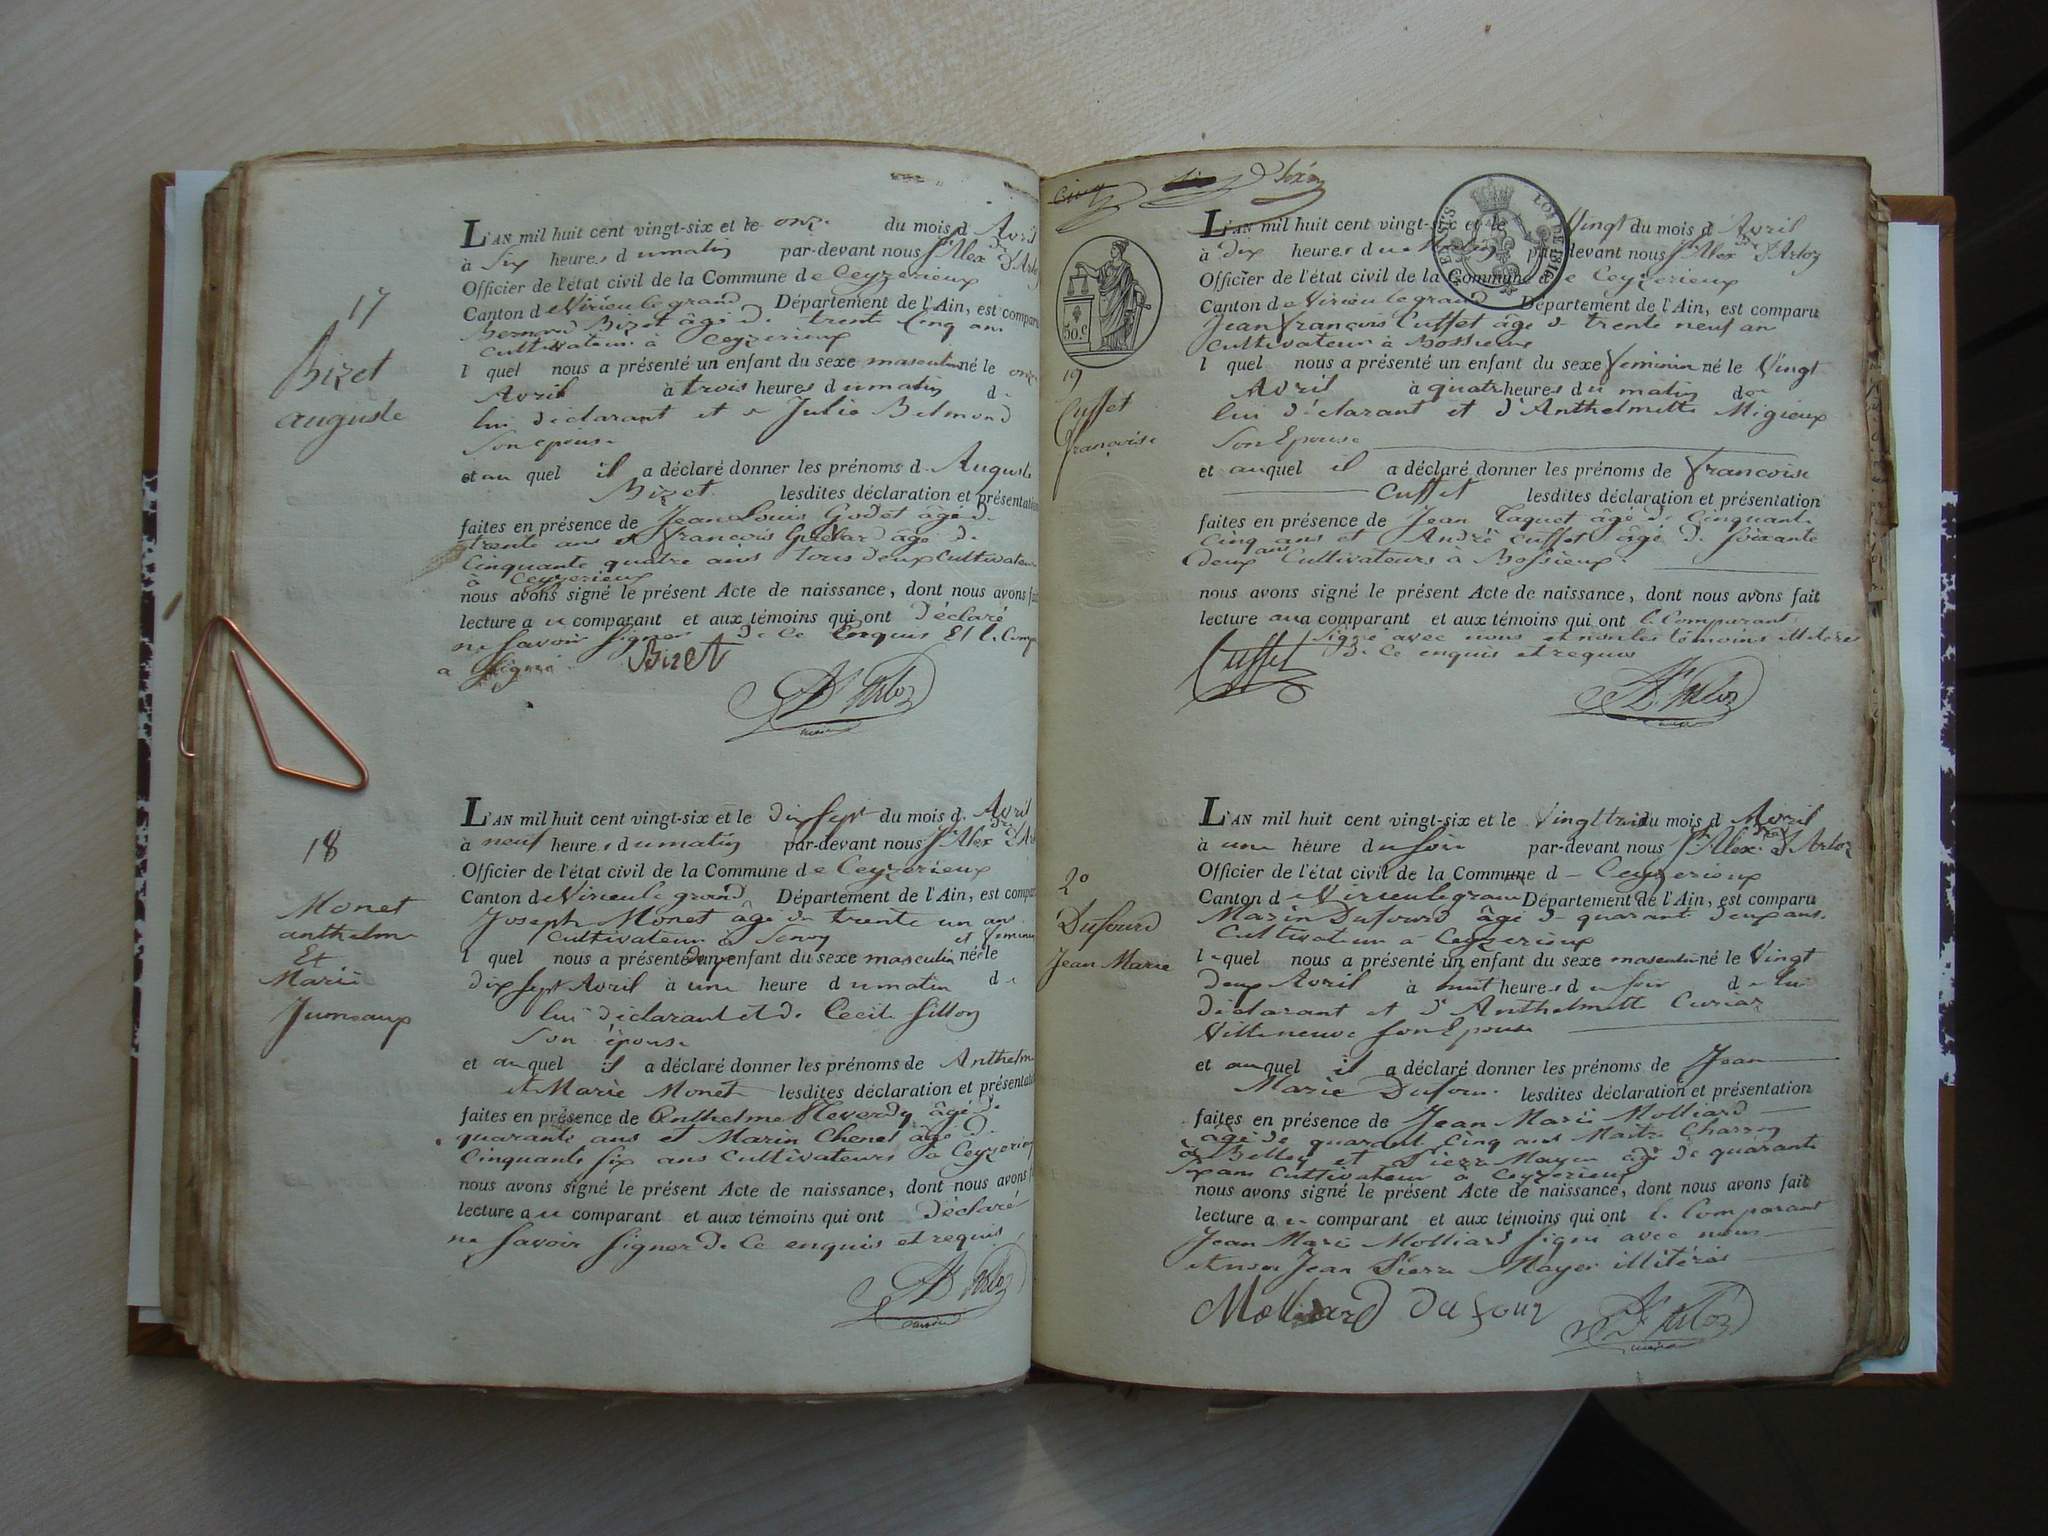 17
Bizet
auguste
L'AN mil huit cent vingt-six et le onze du mois d Avril
à Six heures du matin par-devant nous
Officier de l'état civil de la Commune de Ceyzerieux
Canton de Virieu le grand Département de l'Ain, est comparu
Bernard Bizet âgé de trente Cinq ans
Cultivateur à Ceyzerieux
l quel nous a présenté un enfant du sexe masculin né le onze
Avril à trois heures du matin de
lui déclarant et de Julie Belmond
Son epouse
et au quel il a déclaré donner les prénoms d Auguste
Bizet lesdites déclaration et présentation
faites en présence de Jean Louis Godet âgé de
trente ans et François âgé de
Cinquante quatre ans tous deux Cultivateurs
à Ceyzerieux
nous avons signé le présent Acte de naissance, dont nous avons fait
lecture au comparant et aux témoins qui ont déclaré
ne Savoir Signer de Ce Enquis Et le Comp
a Signé Bizet
18
Monet
anthelm
Et
Marie
Jumeaux
L'AN mil huit cent vingt-six et le dix Sept du mois d. Avril
à neuf heures du matin par-devant nous
Officier de l'état civil de la Commune de Ceyzerieux
Canton de Virieu le grand Département de l'Ain, est comparu
Joseph Monet âgé de trente un ans
Cultivateur à et feminin
l quel nous a présenté deux un enfant du sexe masculin né le
dix Sept Avril à une heure du matin de
lui déclarant et de Cecile
Son épouse
et au quel il a déclaré donner les prénoms de Anthelme
et Marie Monet lesdites déclaration et présentation
faites en présence de Anthelme âgé de
quarante ans et Marin Chenet âgé de
Cinquante six ans Cultivateurs à Ceyzerieux
nous avons signé le présent Acte de naissance, dont nous avons
lecture au comparant et aux témoins qui ont Déclaré
ne Savoir Signer de Ce enquis et requis
50.c
LOI DE 1816
19
Cuffet
françoise
L'AN mil huit cent vingt-six et le Vingt du mois d Avril
à dix heures du matin par-devant nous
Officier de l'état civil de la Commune de Ceyzerieux
Canton de Virieu le grand Département de l'Ain, est comparu
Jean françois Cuffet âgé de trente neuf an
Cultivateur à Bossieux
l quel nous a présenté un enfant du sexe feminin né le Vingt
Avril à quatre heures du matin de
lui déclarant et d'Anthelmette Migieux
Son Epouse
et au quel il a déclaré donner les prénoms de françoise
Cuffet lesdites déclaration et présentation
faites en présence de Jean Taquet âgé de Cinquante
Cinq ans et André Cuffet âgé de Soixante
deux ans Cultivateurs à Bossieux.
nous avons signé le présent Acte de naissance, dont nous avons fait
lecture au comparant et aux témoins qui ont le Comparant
Signé avec nous et non les témoins illitérés
de Ce enquis et requis
Cuffet
20
Dufourd
Jean Marie
L'AN mil huit cent vingt-six et le Vingt trois du mois d Avril
à une heure du Soir par-devant nous
Officier de l'état civil de la Commune d Ceyzerieux
Canton de Virieu le grand Département de l'Ain, est comparu
Marin Dufourd âgé de quarante deux ans.
Cultivateur à Ceyzerieux
l equel nous a présenté un enfant du sexe masculin né le Vingt
deux Avril à huit heures du Soir de lui
déclarant et d'Anthelmette
Villeneuve Son Epouse
et au quel il a déclaré donner les prénoms de Jean
Marie Dufour. lesdites déclaration et présentation
faites en présence de Jean Marie Molliard
âgé de quarante Cinq ans Maitre Charron
à Belley et Pierre Mayer âgé de quarante
Six ans Cultivateur à Ceyzerieux
nous avons signé le présent Acte de naissance, dont nous avons fait
lecture au comparant et aux témoins qui ont le Comparant
Jean Marie Molliard Signé avec nous
et non Jean Pierre Mayer illitéré
Molliard Dufour